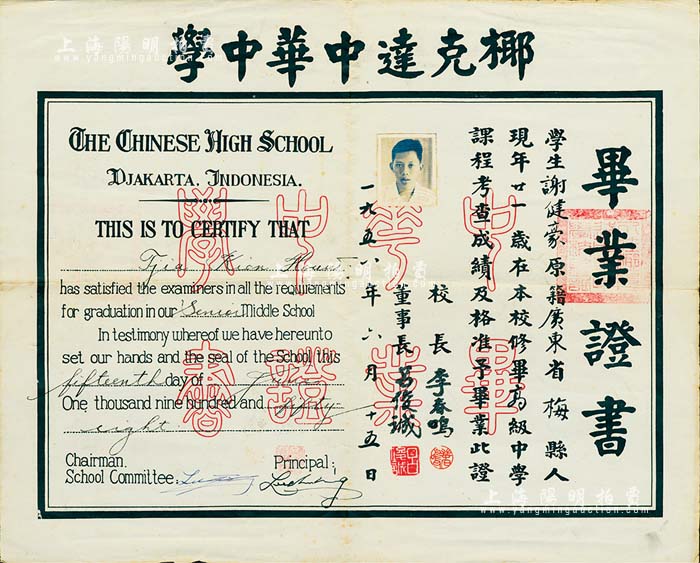 椰克達中華中學
畢業證書
學生謝健豪原籍廣東省梅縣人
現年廿一歲在本校修畢高級中學
課程考查成績及格准予畢業此證
校長 李春鳴
董事長 吕俊誠
一九五八年六月十五日
THE CHINESE HIGH SCHOOL
DJAKARTA, INDONESIA.
THIS IS TO CERTIFY THAT
Tjia Kian
has satisfied the examiners in all the requirements
for graduation in our Senior Middle School
In testimony whereof we have hereunto
set our hands and the seal of the School this
fifteenth day of June
One thousand nine hundred and fifty-
eight
Chairman.
School Committee:
Principal;
上海陽明拍賣
www.yangmingauction.com
上海陽明拍賣
www.yangmingauction.com